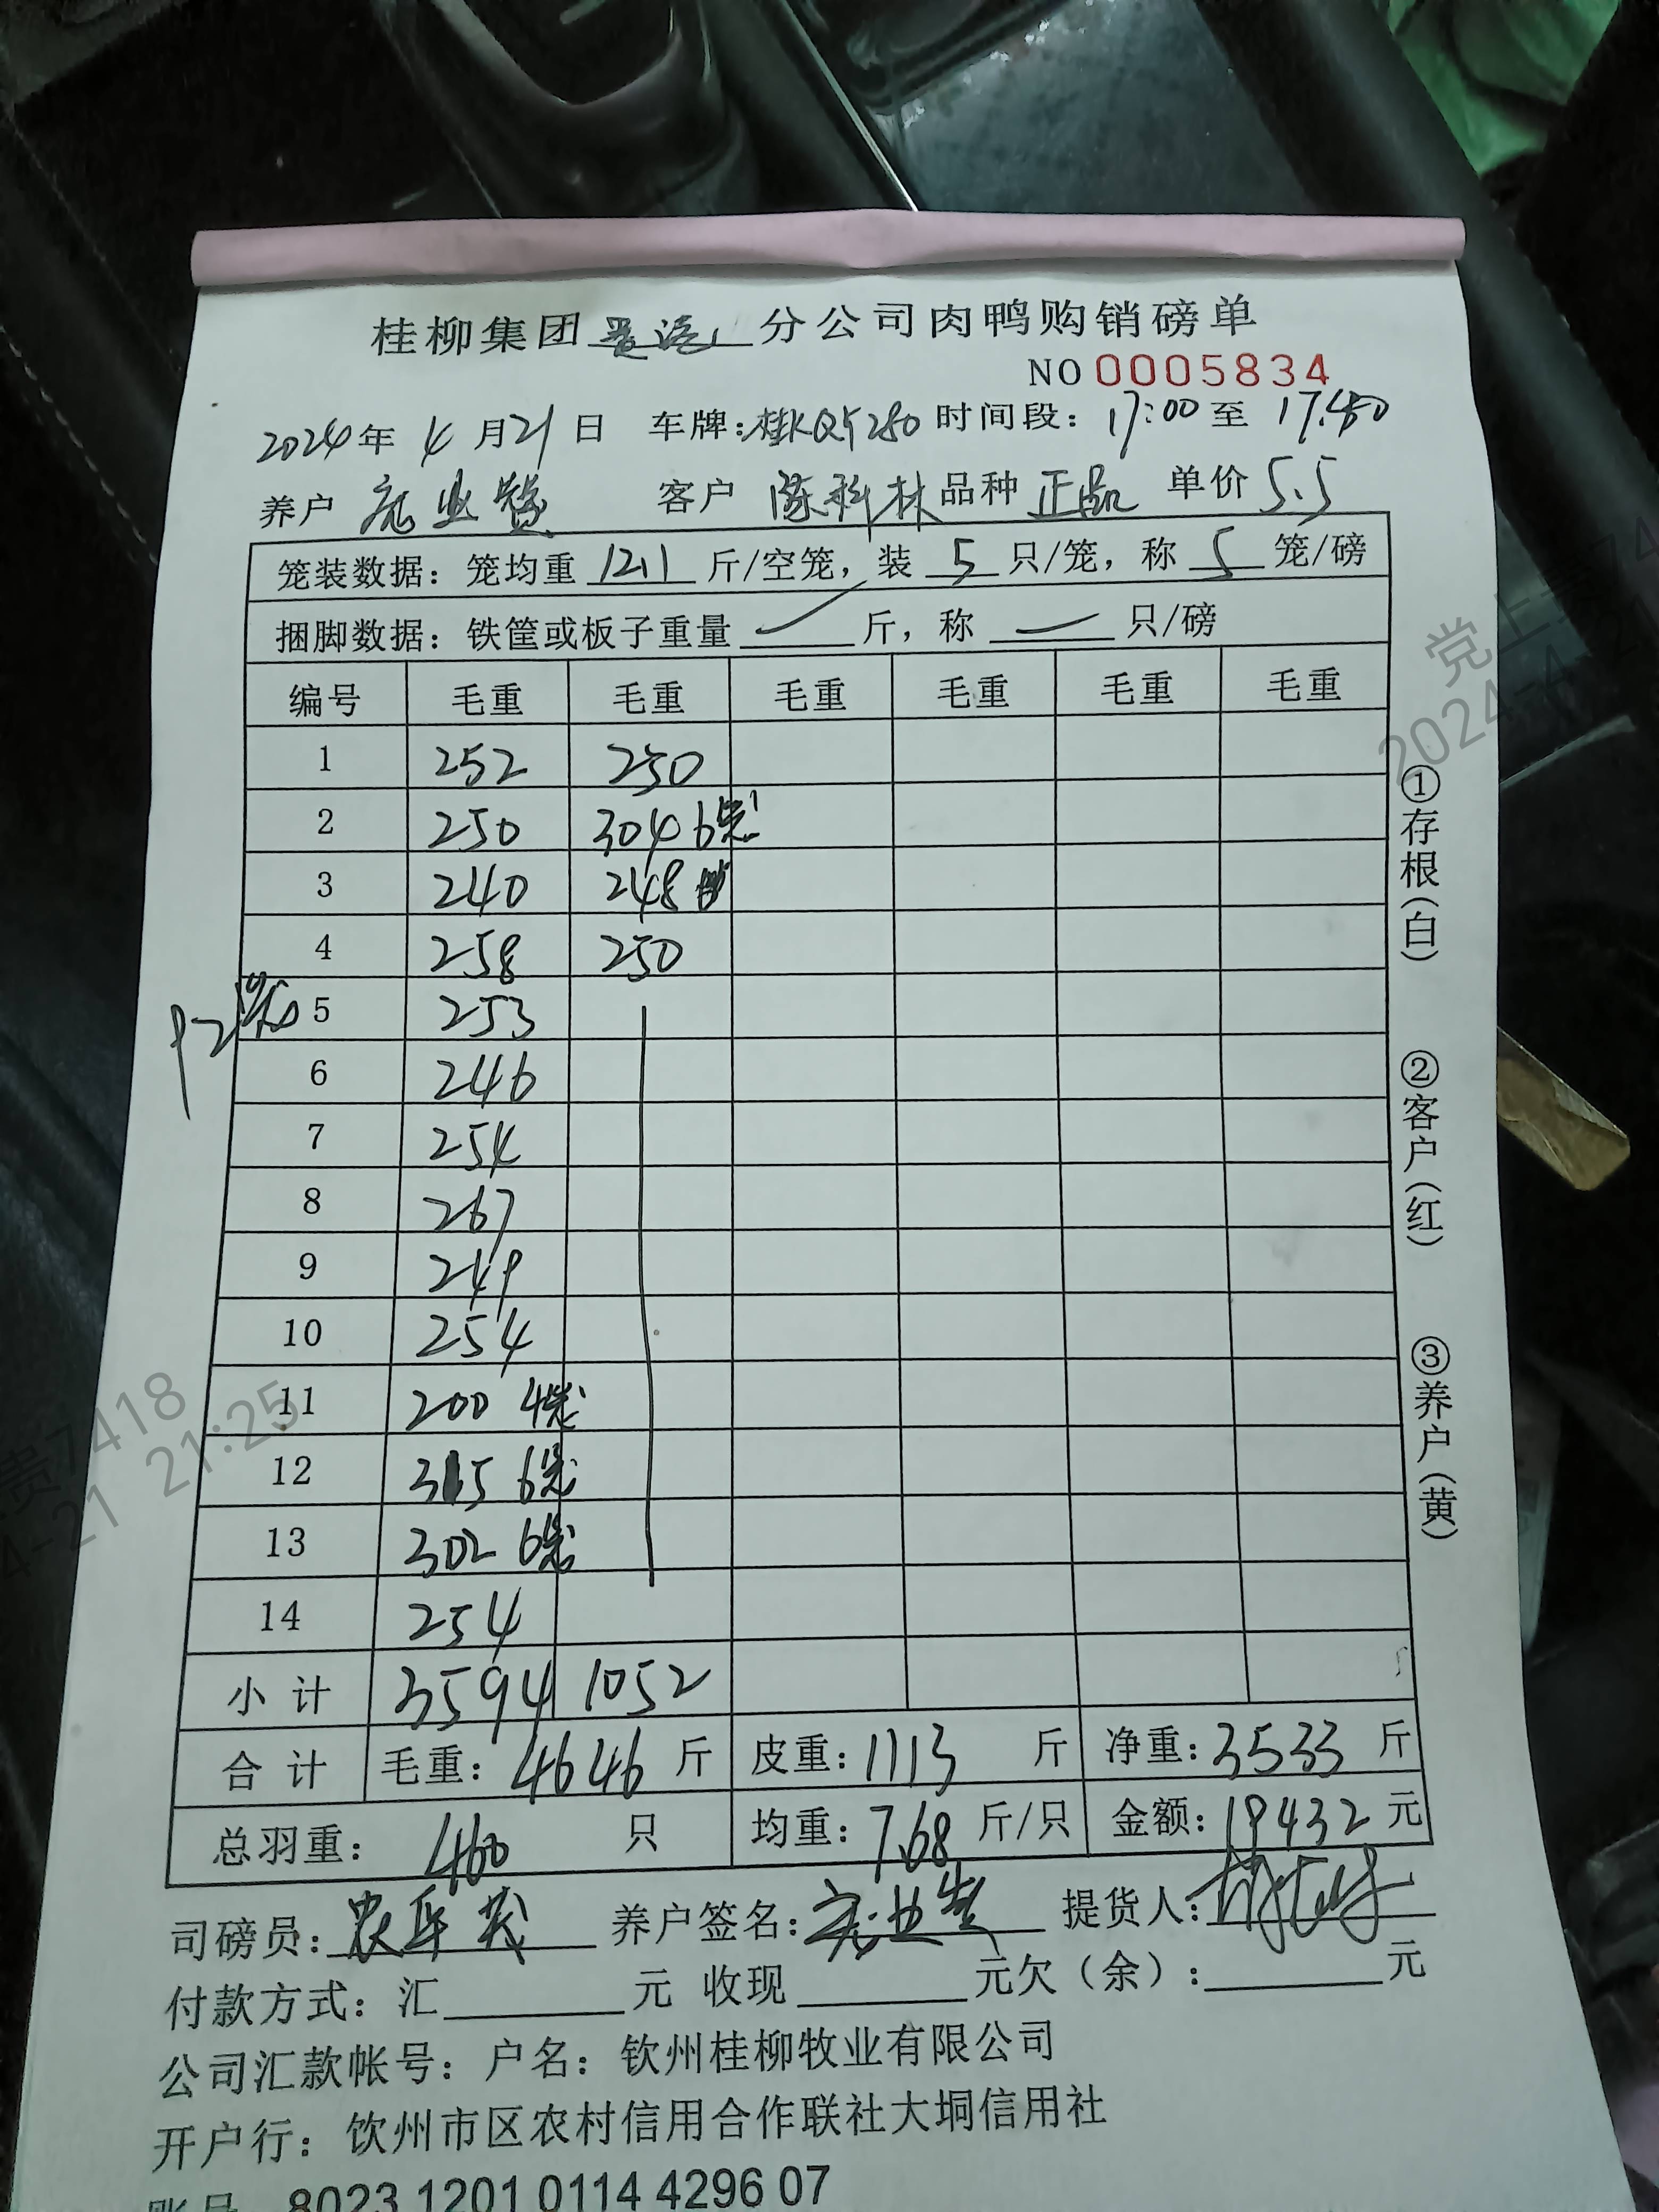 桂柳集团 分公司肉鸭购销磅单
NO 0005834
2024年 4月21日 车牌:桂KQY280 时间段: 17:00至
养户 客户 陈科林 品种 正品 单价 5.5
笼装数据: 笼均重 12.1 斤/空笼, 装 5 只/笼, 称 5 笼/磅
捆脚数据: 铁筐或板子重量 斤, 称 只/磅
编号 毛重 毛重 毛重 毛重 毛重 毛重
1 252 250
2 250 304 6笼
3 240 248
4 258 250
92笼 5 253
6 246
7 254
8 267
9 249
10 254
11 200 4笼
12 315 6笼
13 302 6笼
14 254
小计 3594 1052
合计 毛重: 4646 斤 皮重: 1113 斤 净重: 3533 斤
总羽重: 460 只 均重: 7.68 斤/只 金额: 19432 元
司磅员: 养户签名: 提货人:
付款方式: 汇 元 收现 元欠(余): 元
公司汇款帐号: 户名: 钦州桂柳牧业有限公司
开户行: 钦州市区农村信用合作联社大垌信用社
8023 1201 0114 4296 07
①存根(白)
②客户(红)
③养户(黄)
贵7418
4-21 21:25
党上贵74
2024-4-21